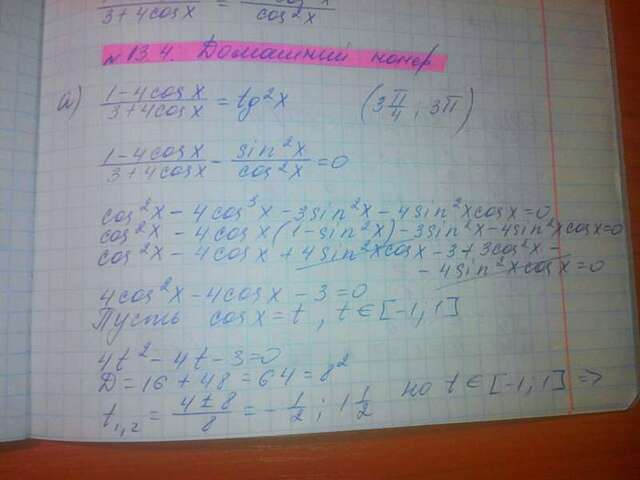 3+4cosx = cos²x
№ 13.4. Домашний номер
а) (1-4cosx)/(3+4cosx) = tg²x (3π/4; 3π)
(1-4cosx)/(3+4cosx) - sin²x/cos²x = 0
cos²x - 4cos³x - 3sin²x - 4sin²xcosx = 0
cos²x - 4cosx(1-sin²x) - 3sin²x - 4sin²xcosx = 0
cos²x - 4cosx + 4sin²xcosx - 3 + 3cos²x -
- 4sin²xcosx = 0
4cos²x - 4cosx - 3 = 0
Пусть cosx = t, t ∈ [-1; 1]
4t² - 4t - 3 = 0
D = 16 + 48 = 64 = 8²
t₁,₂ = (4±8)/8 = -1/2; 1 1/2 но t ∈ [-1; 1] =>